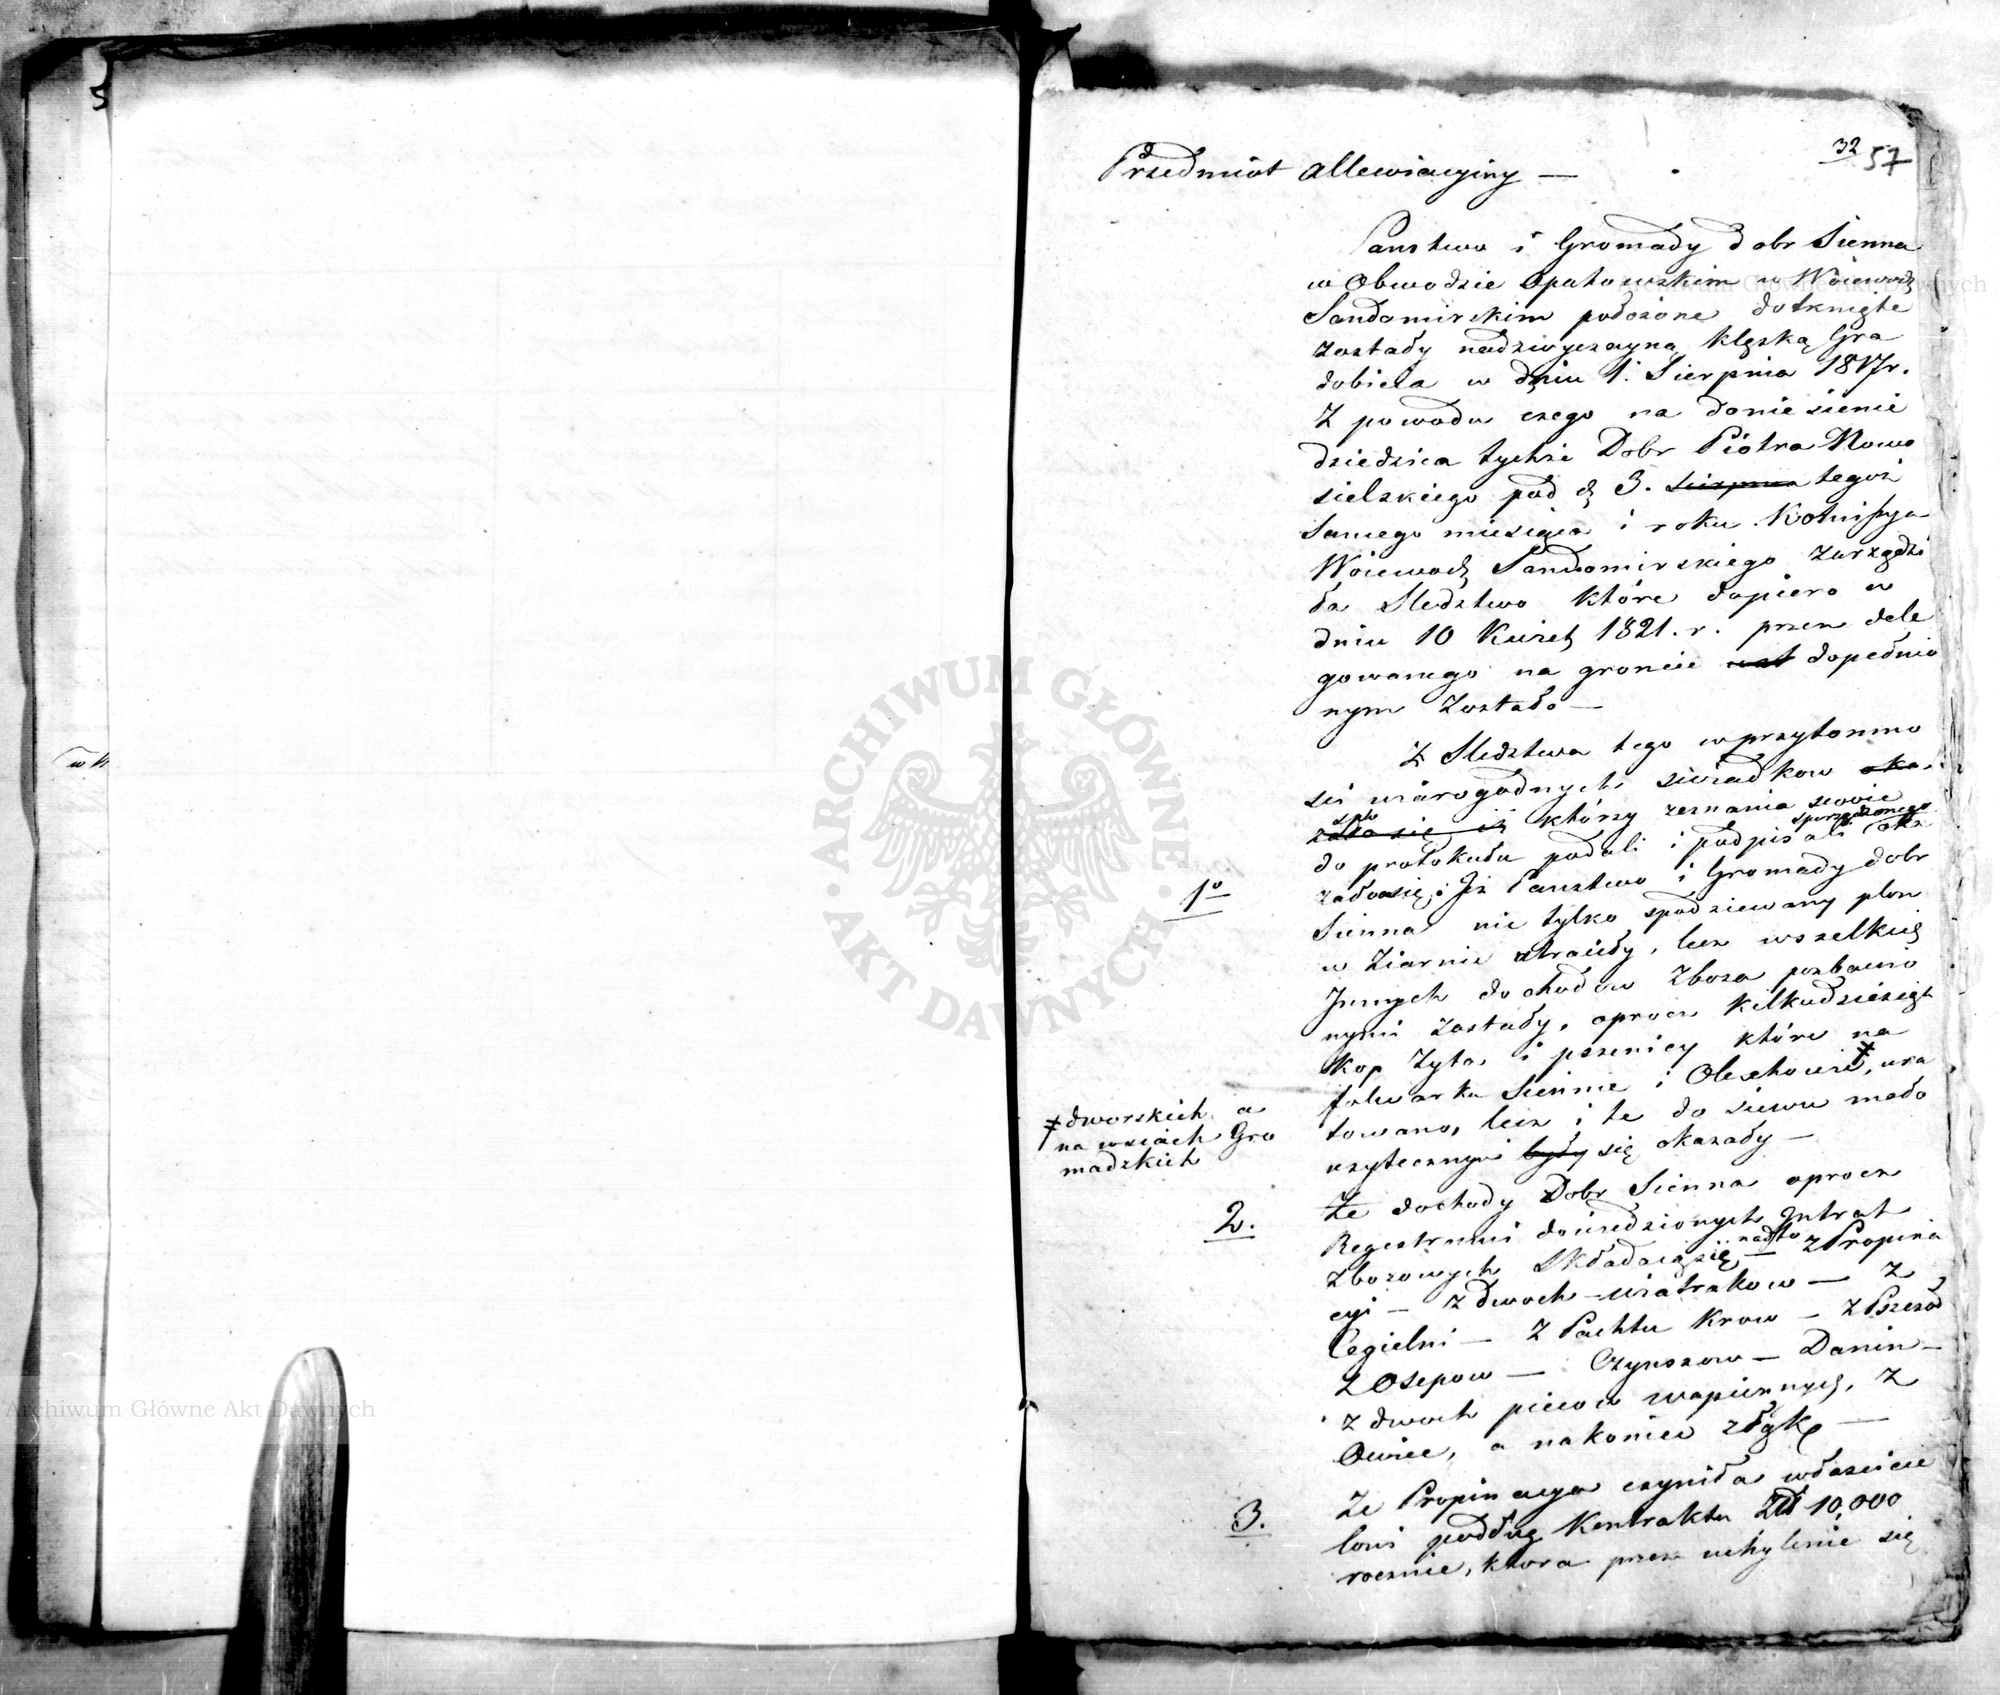 32 57
Przedmiot allewiacyiny —
Państwo i Gromady dobr Sienna
w Obwodzie Opatowskim w Woiewodz
Sandomirskim położone dotknięte
zostały nadzwyczayną klęską Gra
dobicia w dniu 1. Sierpnia 1817 r.
Z powodu czego na doniesienie
dziedzica tychże Dobr Piotra Nowo
sielskiego pod d 3. Sierpnia tegoż
samego miesiąca i roku Kommissya
Woiewodz Sandomirskiego zarządzi
ła Sledztwo które dopiero w
dniu 10 Kwiet 1821. r. przez dele
gowanego na groncie dopełnio
nym zostało —
Z Sledztwa tego w przytomno
ści wiarogodnych swiadkow oka
zało się iż którzy zeznania swoie
do protokułu podali i podpisali sporządzonego oka
1o zało się: Iż Państwo i Gromady dobr
Sienna nie tylko spodziewany plon
w ziarnie straciły, lecz wszelkich
Innych dochodow zboża pozbawio
nymi zostały, oprocz kilkudziesiąt
kop Zyta i pszenicy które na
folwarku Siennie i Olechowie, ura
‡ dworskich a
na wsiach Gro
madzkich
towano, lecz i te do siewu mało
uzytecznymi były się okazały —
2. Ze dochody Dobr Sienna oprocz
Regestrami dowiedzionych Intrat
zbozowych składaią się nadto — z Propina
cyi — z dwoch wiatrakow — z
Cegielni — z Pachtu Krow — z Pszczół
z Osepow — Czynszow — Danin —
z dwoch piecow wapiennych, z
Owiec, a nakoniec z łąk —
3. Ze Propinacya czyniła właścicie
lowi podług Kontraktu Zł 10,000
rocznie, ktora przez uchylenie się
w W
ARCHIWUM GŁÓWNE · AKT DAWNYCH ·
Archiwum Główne Akt Dawnych
Archiwum Główne Akt Dawnych